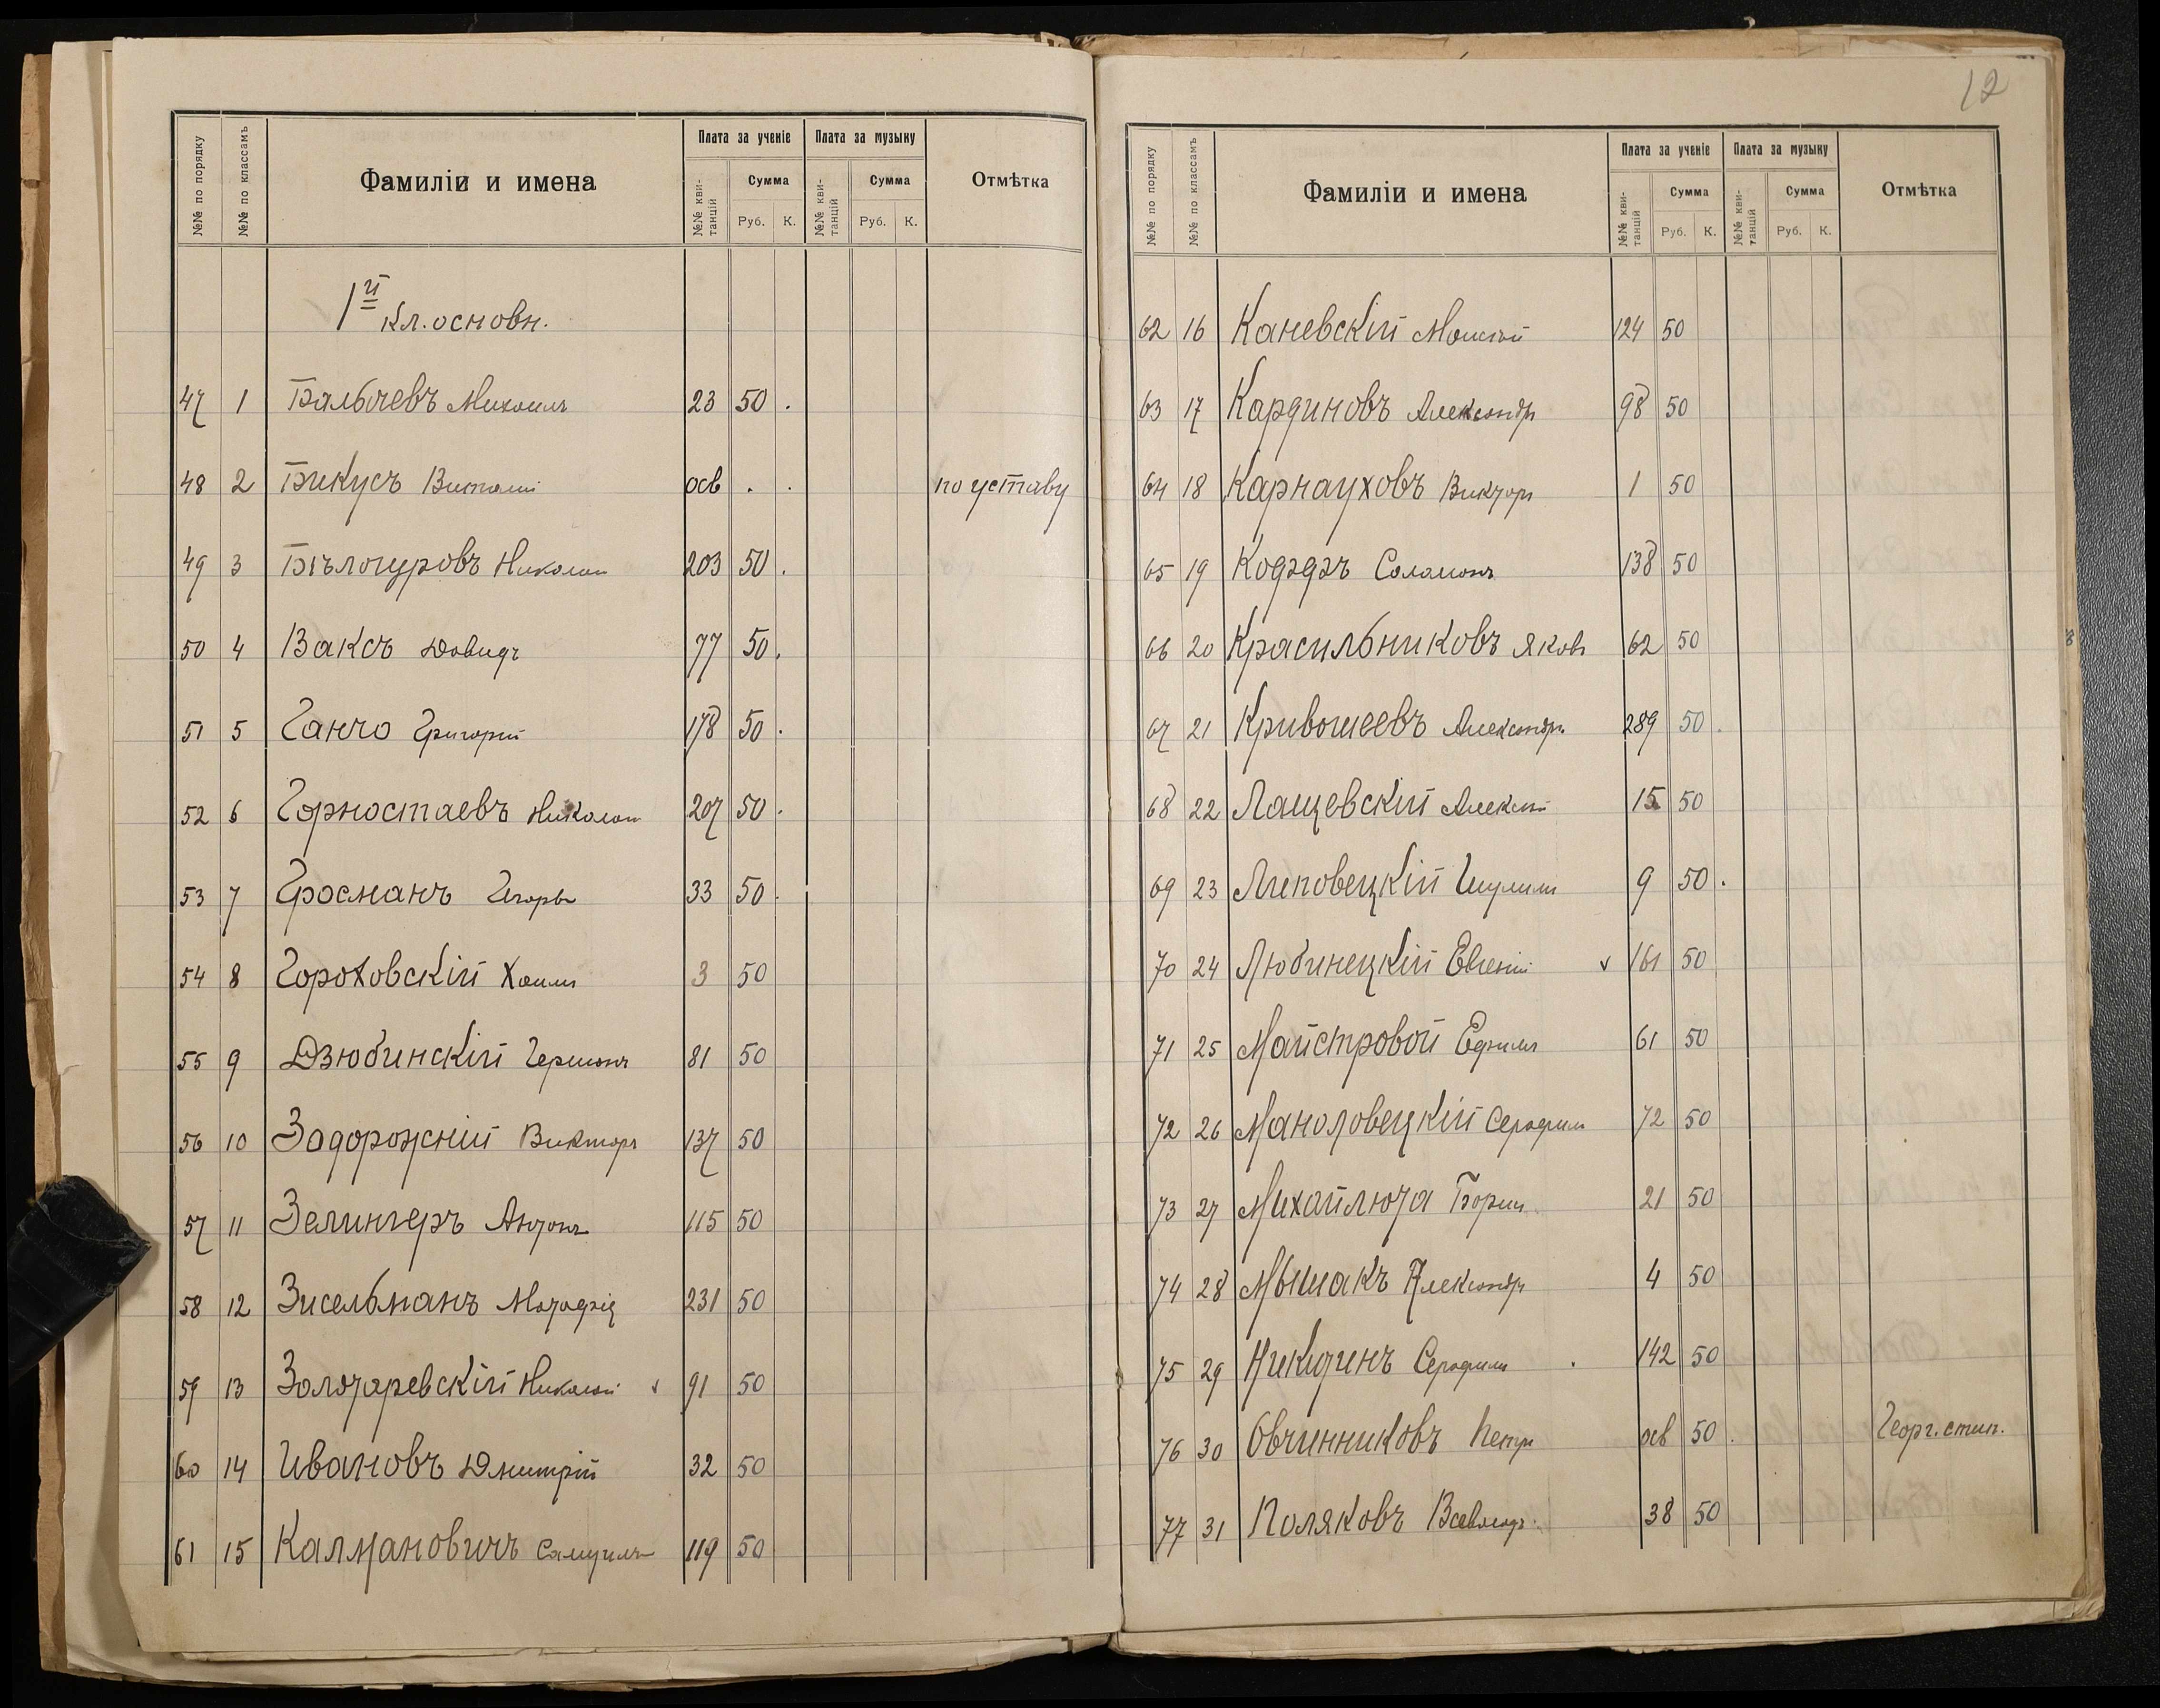 №№ по порядку №№ по классамъ Фамиліи и имена Плата за ученіе Плата за музыку Отмѣтка
№№ квитанцій Сумма №№ квитанцій Сумма
Руб. К. Руб. К.
1й кл. основн.
47 1 Бальчевъ Михаилъ 23 50 .
48 2 Бикусъ Виталій осв . . по уставу
49 3 Бѣлогуровъ Николай 203 50 .
50 4 Ваксъ Давидъ 77 50 .
51 5 Ганчо Григорій 178 50 .
52 6 Горностаевъ Николай 207 50 .
53 7 Гросманъ Игорь 33 50 .
54 8 Гороховскій Хаимъ 3 50
55 9 Дзюбинскій Германъ 81 50
56 10 Задорожній Викторъ 137 50
57 11 Зелингеръ Антонъ 115 50
58 12 Зисельманъ 231 50
59 13 Золотаревскій Николай 91 50
60 14 Ивановъ Дмитрій 32 50
61 15 Калмановичъ Самуилъ 119 50
12
№№ по порядку №№ по классамъ Фамиліи и имена Плата за ученіе Плата за музыку Отмѣтка
№№ квитанцій Сумма №№ квитанцій Сумма
Руб. К. Руб. К.
62 16 Каневскій Моисей 124 50
63 17 Кардиновъ Александръ 98 50
64 18 Карнауховъ Викторъ 1 50
65 19 Кодрдръ Саламонъ 138 50
66 20 Красильниковъ Яковъ 62 50
67 21 Кривошеевъ Александръ 289 50 .
68 22 Лащевскій Алексѣй 15 50
69 23 Липовецкій Шулимъ 9 50 .
70 24 Любинецкій Евгеній v 161 50
71 25 Майстровой Ефимъ 61 50
72 26 Маноловецкій Серафимъ 72 50
73 27 Михайлюта Борисъ 21 50
74 28 Мышакъ Александръ 4 50
75 29 Никитинъ Серафимъ . 142 50
76 30 Овчинниковъ Петръ осв 50 . Георг. стип.
77 31 Поляковъ Всеволодъ 38 50